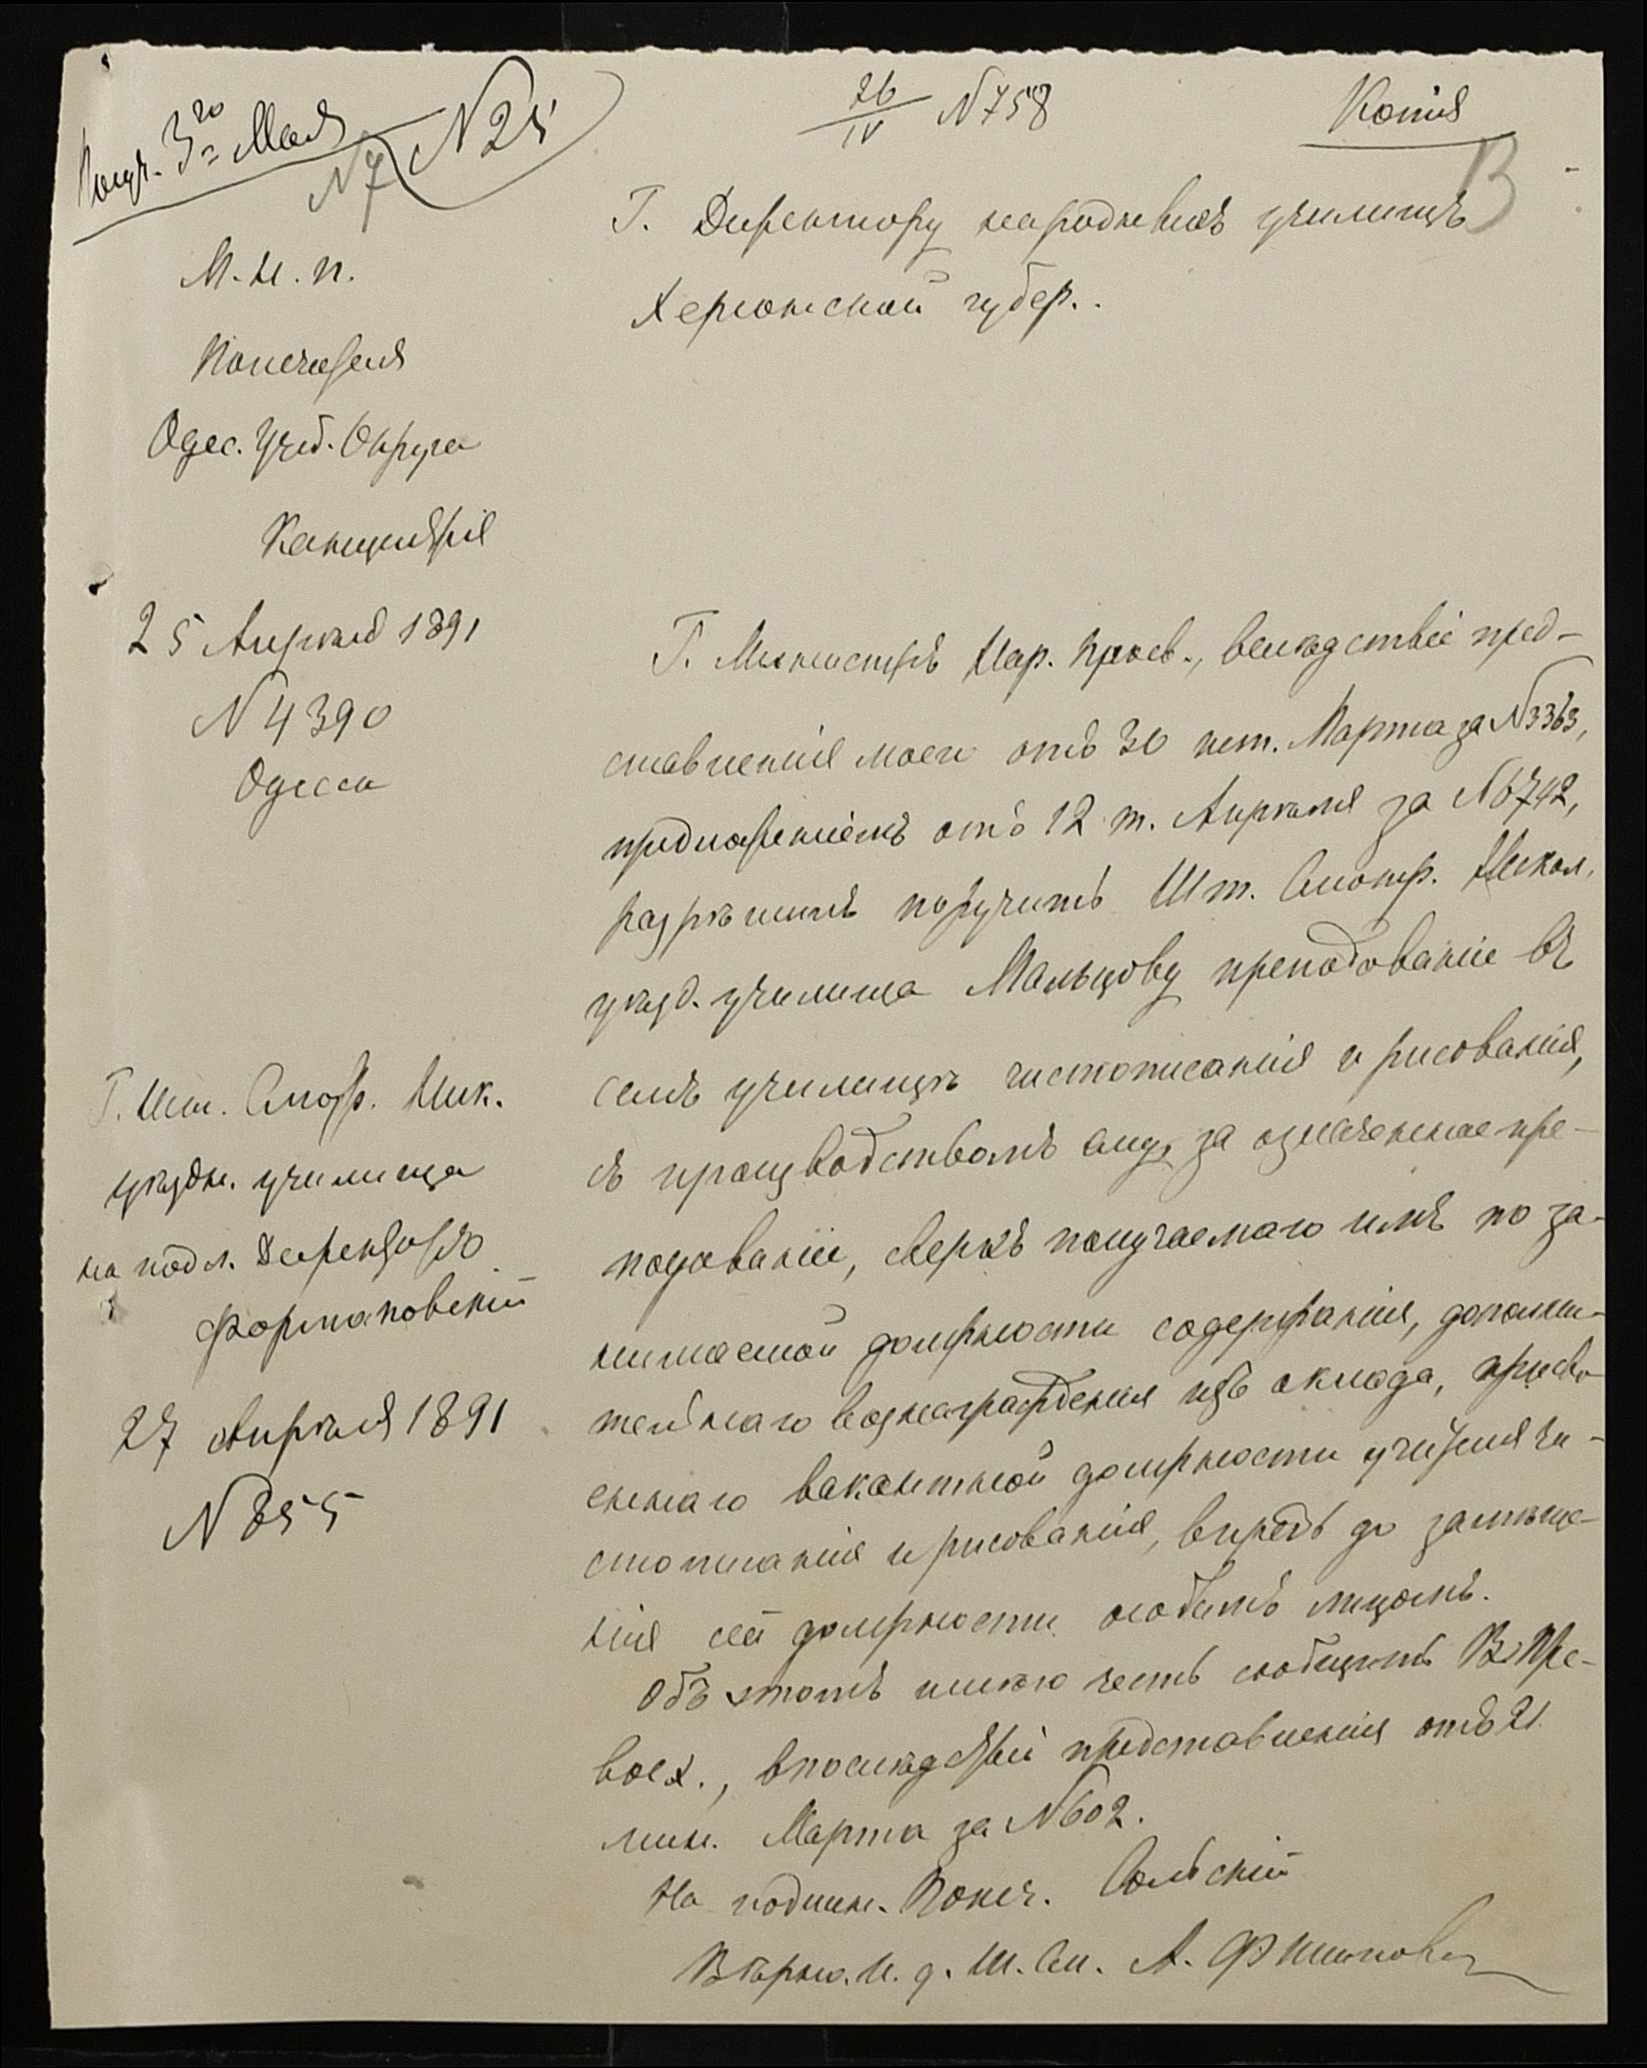 Получ. 3го Мая N 25
N 7
26/IV N 758
Копія
13
Г. Директору народныхъ училищъ
Херсонской губер.
М. Н. П.
Попечителя
Одес. Учеб. Округа
Канцелярія
25 Апрѣля 1891
N 4390
Одесса
Г. Шт. Смотр. Ник.
уѣздн. училища
на подл. Директоръ
Фармаковскій
27 Апрѣля 1891
N 855
Г. Министръ Нар. Просв., вслѣдствіе пред-
ставленія моего отъ 30 ист. Марта за N 3363,
предложеніемъ отъ 12 т. Апрѣля за N 6742,
разрѣшилъ поручить Шт. Смотр. Никол.
уѣзд. училища Мальцову преподованіе въ
семъ училищѣ чистописанія и рисованія,
съ производствомъ ему, за означенное пре-
подованіе, сверхъ получаемаго имъ по за-
нимаемой должности содержанія, дополни-
тельнаго вознагражденія изъ оклада, присво-
еннаго вакантной должности учителя чи-
стописанія и рисованія, впредь до замѣще-
нія сей должности особымъ лицомъ.
Объ этомъ имѣю честь сообщить В. Пре-
восх., впослѣдствіи представленія отъ 21
мин. Марта за N 602.
На подлин. Попеч. Сольскій
Вѣрно. И. д. Ш. См. А. Филипов